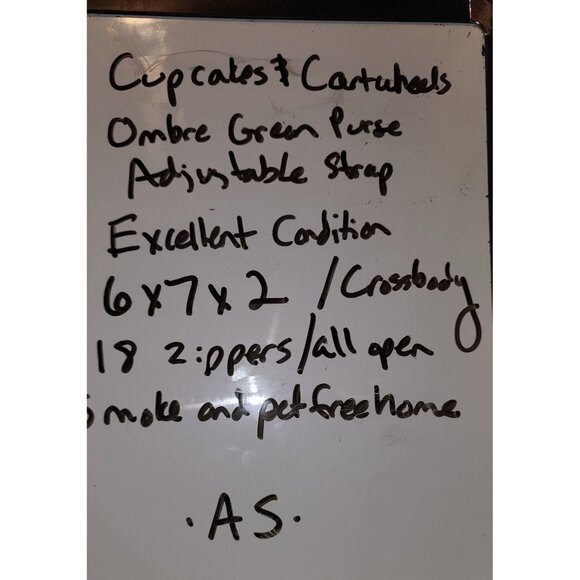 Cupcakes & Cartwheels
Ombre Green Purse
Adjustable Strap
Excellent Condition
6x7x2 /Crossbody
18 Zippers/all open
Smoke and pet free home
.AS.